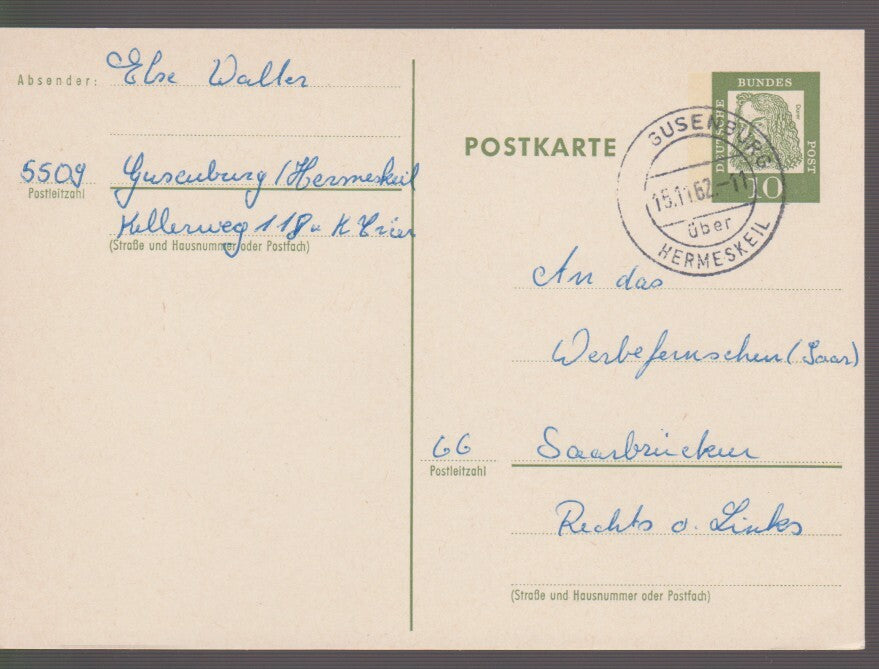 Absender: Else Waller
5509 Gusenburg/Hermeskeil
Postleitzahl
Kellerweg 118a K Trier
(Straße und Hausnummer oder Postfach)
POSTKARTE
DEUTSCHE BUNDES POST
Dürer
10
GUSENBURG
15.11.62.-11
über
HERMESKEIL
An das
Werbefernsehen (Saar)
66 Saarbrücken
Postleitzahl
Rechts o. Links
(Straße und Hausnummer oder Postfach)